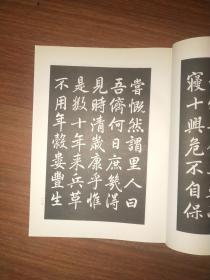 寢十興危不自保
嘗慨然謂里人曰
吾儕何日庶幾得
見時清歲康乎惟
是數十年来兵革
不用年穀婁豐生